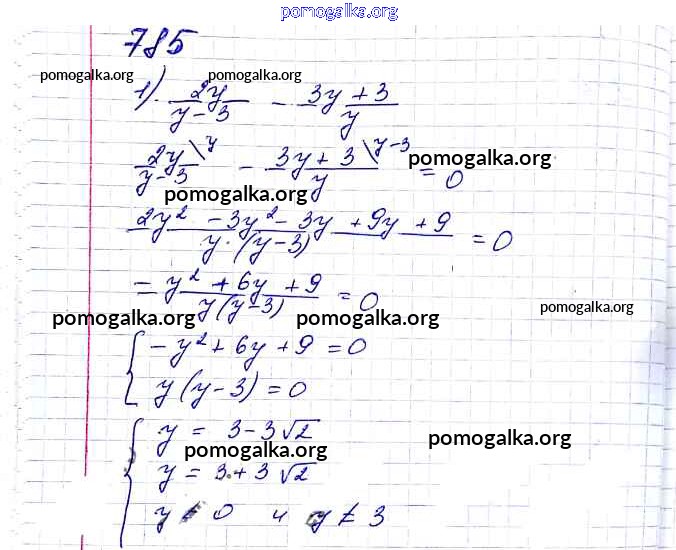 pomogalka.org
785
pomogalka.org pomogalka.org
1). 2y/(y-3) - (3y+3)/y
2y/(y-3) \y - (3y+3)/y \y-3 = 0 pomogalka.org
pomogalka.org
(2y² - 3y² - 3y + 9y + 9)/(y·(y-3)) = 0
= (y² + 6y + 9)/(y(y-3)) = 0 pomogalka.org
pomogalka.org pomogalka.org
{ -y² + 6y + 9 = 0
y(y-3) = 0
{ y = 3-3√2
pomogalka.org pomogalka.org
y = 3+3√2
pomogalka.org
y ≠ 0 и y ≠ 3